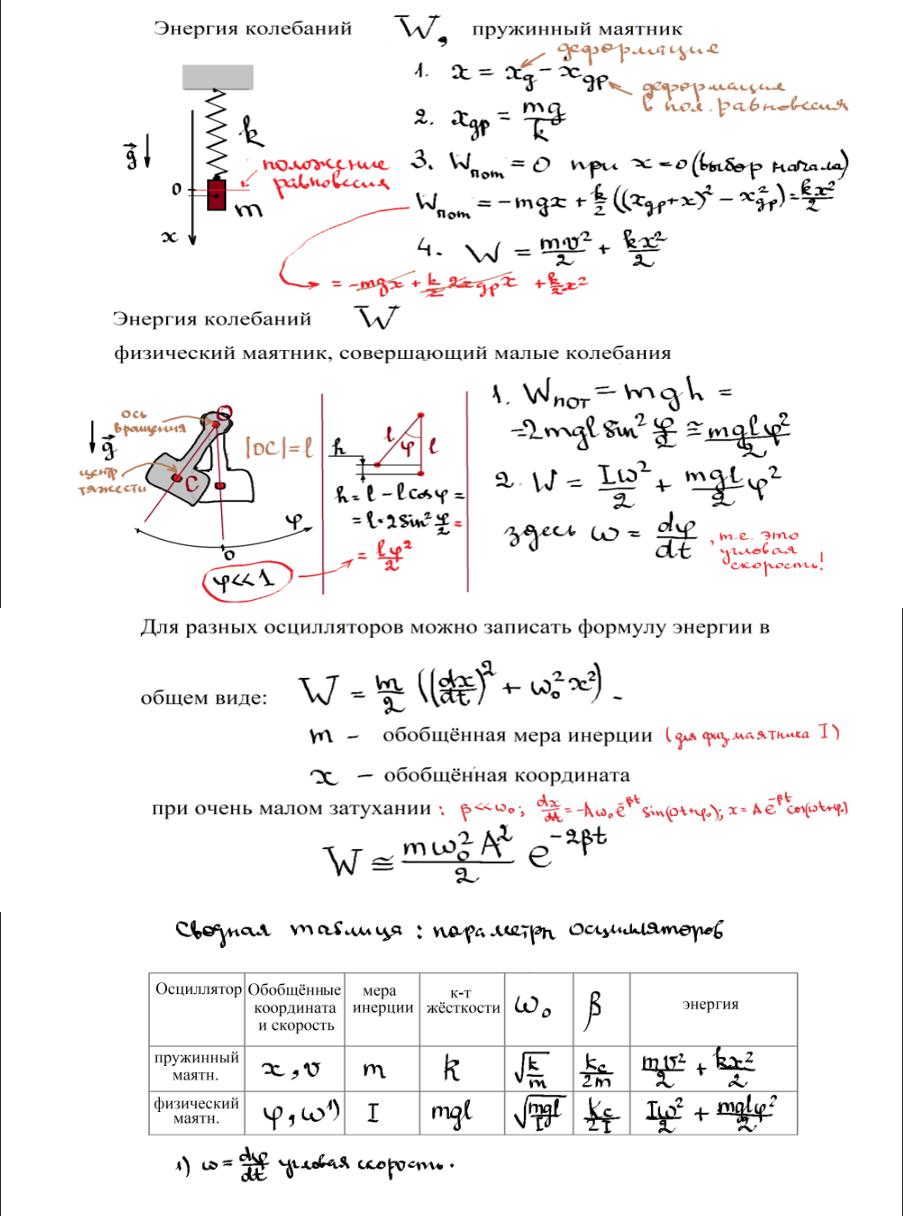 Энергия колебаний W, пружинный маятник
деформация
1. x = x_д - x_др
деформация в пол. равновесия
2. x_др = mg/k
k
g
положение равновесия
3. W_пот = 0 при x=0 (выбор начала)
0
m
W_пот = -mgx + k/2 ((x_др+x)² - x²_др) = kx²/2
x
4. W = mv²/2 + kx²/2
= -mgx + k/2 2x_др x + k/2 x²
Энергия колебаний W
физический маятник, совершающий малые колебания
ось вращения
O
g
|OC|=l
центр тяжести
C
φ
0
φ<<1
h
l
φ
l
h = l - l cosφ =
= l·2sin² φ/2 =
= lφ²/2
1. W_ПОТ = mgh =
=2mgl sin² φ/2 ≅ mglφ²/2
2. W = Iω²/2 + mgl/2 φ²
здесь ω = dφ/dt , т.е. это угловая скорость!
Для разных осцилляторов можно записать формулу энергии в
общем виде: W = m/2 ((dx/dt)² + ω₀²x²)
m – обобщённая мера инерции (для физ маятника I)
x – обобщённая координата
при очень малом затухании : β<<ω₀; dx/dt = -Aω₀e^-βt sin(ωt+φ₀); x = Ae^-βt cos(ωt+φ₀)
W ≅ mω₀²A²/2 e^-2βt
Сводная таблица : параметры осцилляторов
Осциллятор Обобщённые координата и скорость мера инерции к-т жёсткости ω₀ β энергия
пружинный маятн. x, v m k √k/m k_c/2m mv²/2 + kx²/2
физический маятн. φ, ω¹⁾ I mgl √mgl/I k_c/2I Iω²/2 + mglφ²/2
1) ω = dφ/dt угловая скорость.